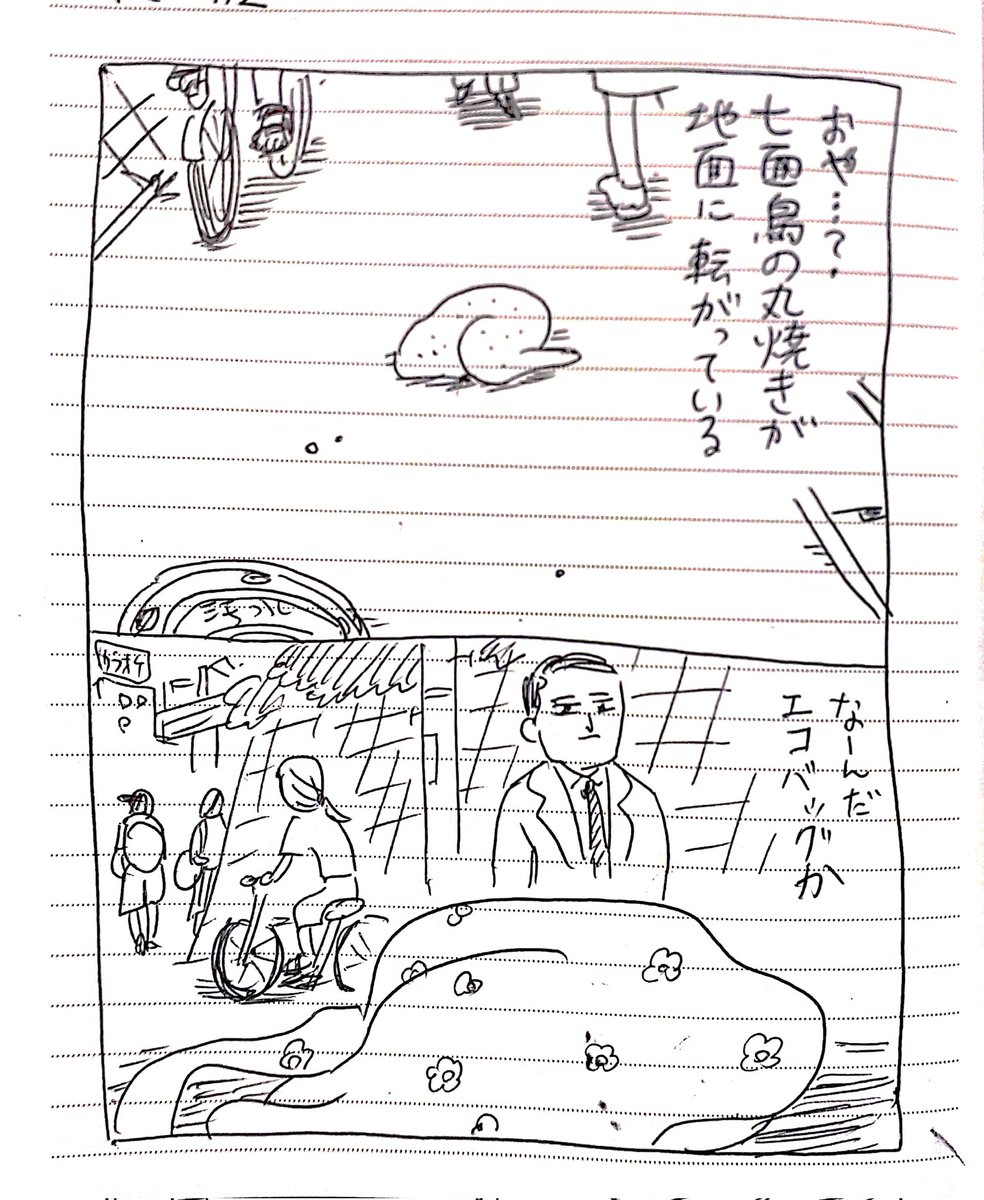 おや…？
七面鳥の丸焼きが
地面に転がっている
カラオケ
なーんだ
エコバッグか